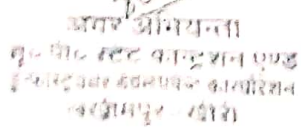 अवर अभियन्ता
यू० पी० स्टेट कान्ट्रक्शन एण्ड
इन्फ्रास्ट्रक्चर डेवलपमेन्ट कारपोरेशन
लखीमपुर खीरी